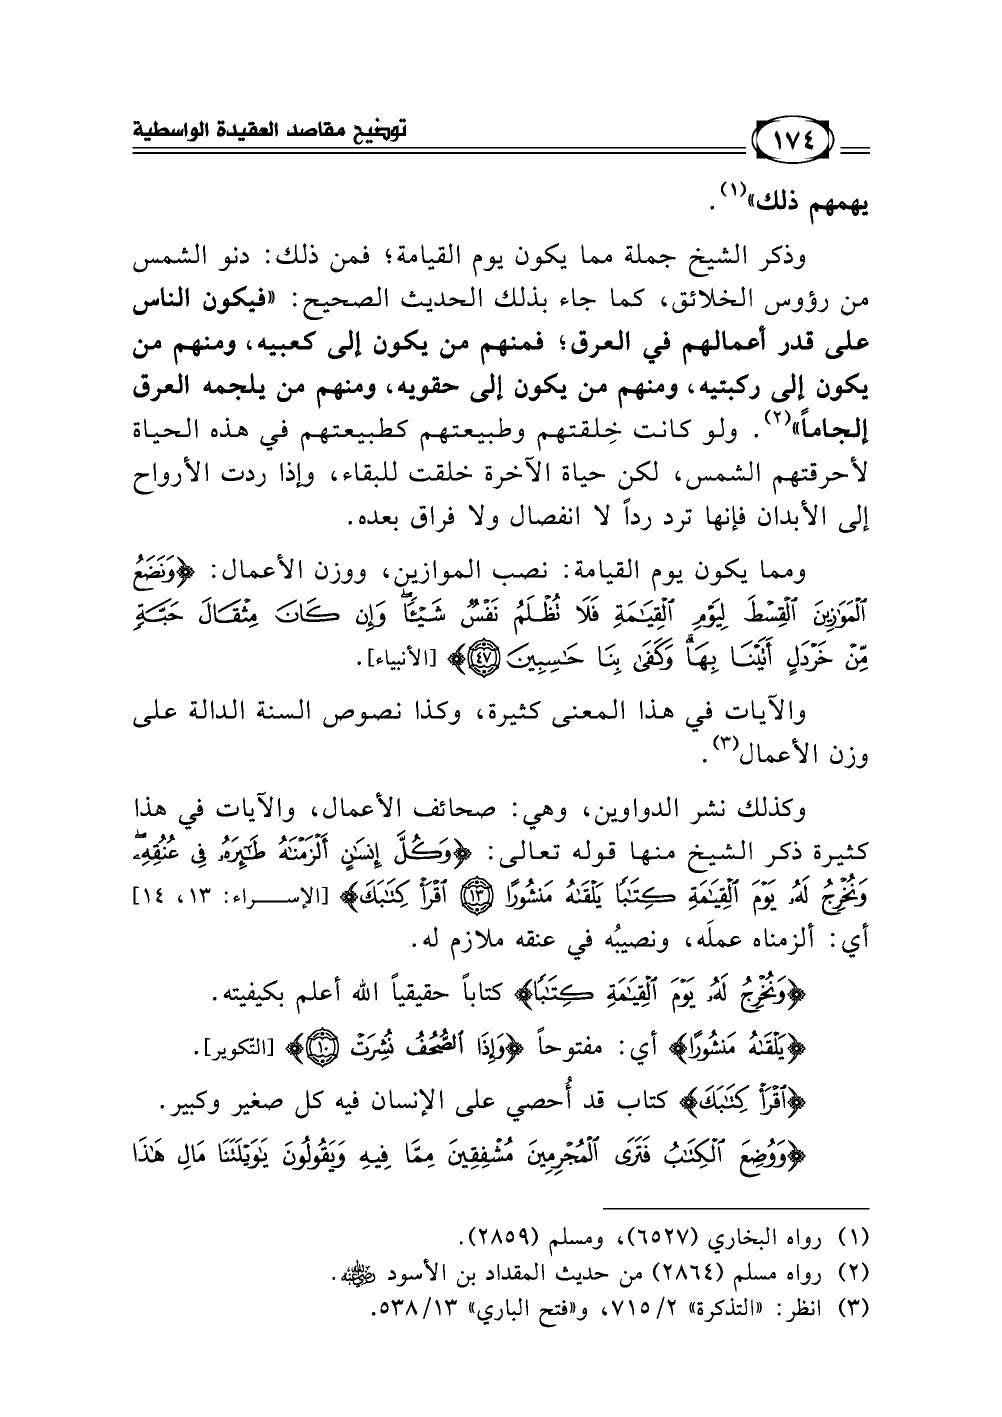 ١٧٤ توضيح مقاصد العقيدة الواسطية
يهمهم ذلك»(١).
وذكر الشيخ جملة مما يكون يوم القيامة؛ فمن ذلك: دنو الشمس
من رؤوس الخلائق، كما جاء بذلك الحديث الصحيح: «فيكون الناس
على قدر أعمالهم في العرق؛ فمنهم من يكون إلى كعبيه، ومنهم من
يكون إلى ركبتيه، ومنهم من يكون إلى حقويه، ومنهم من يلجمه العرق
إلجاماً»(٢). ولو كانت خِلقتهم وطبيعتهم كطبيعتهم في هذه الحياة
لأحرقتهم الشمس، لكن حياة الآخرة خلقت للبقاء، وإذا ردت الأرواح
إلى الأبدان فإنها ترد رداً لا انفصال ولا فراق بعده.
ومما يكون يوم القيامة: نصب الموازين، ووزن الأعمال: ﴿وَنَضَعُ
ٱلْمَوَٰزِينَ ٱلْقِسْطَ لِيَوْمِ ٱلْقِيَٰمَةِ فَلَا تُظْلَمُ نَفْسٌ شَيْـًٔاۖ وَإِن كَانَ مِثْقَالَ حَبَّةٍ
مِّنْ خَرْدَلٍ أَتَيْنَا بِهَاۗ وَكَفَىٰ بِنَا حَٰسِبِينَ ٤٧﴾ [الأنبياء].
والآيات في هذا المعنى كثيرة، وكذا نصوص السنة الدالة على
وزن الأعمال(٣).
وكذلك نشر الدواوين، وهي: صحائف الأعمال، والآيات في هذا
كثيرة ذكر الشيخ منها قوله تعالى: ﴿وَكُلَّ إِنسَٰنٍ أَلْزَمْنَٰهُ طَٰٓئِرَهُۥ فِى عُنُقِهِۦۖ
وَنُخْرِجُ لَهُۥ يَوْمَ ٱلْقِيَٰمَةِ كِتَٰبًا يَلْقَىٰهُ مَنشُورًا ١٣ ٱقْرَأْ كِتَٰبَكَ﴾ [الإسراء: ١٣، ١٤]
أي: ألزمناه عملَه، ونصيبُه في عنقه ملازم له.
﴿وَنُخْرِجُ لَهُۥ يَوْمَ ٱلْقِيَٰمَةِ كِتَٰبًا﴾ كتاباً حقيقياً الله أعلم بكيفيته.
﴿يَلْقَىٰهُ مَنشُورًا﴾ أي: مفتوحاً ﴿وَإِذَا ٱلصُّحُفُ نُشِرَتْ ١٠﴾ [التكوير].
﴿ٱقْرَأْ كِتَٰبَكَ﴾ كتاب قد أُحصي على الإنسان فيه كل صغير وكبير.
﴿وَوُضِعَ ٱلْكِتَٰبُ فَتَرَى ٱلْمُجْرِمِينَ مُشْفِقِينَ مِمَّا فِيهِ وَيَقُولُونَ يَٰوَيْلَتَنَا مَالِ هَٰذَا
(١) رواه البخاري (٦٥٢٧)، ومسلم (٢٨٥٩).
(٢) رواه مسلم (٢٨٦٤) من حديث المقداد بن الأسود رضي الله عنه.
(٣) انظر: «التذكرة» ٢/ ٧١٥، و«فتح الباري» ١٣/ ٥٣٨.